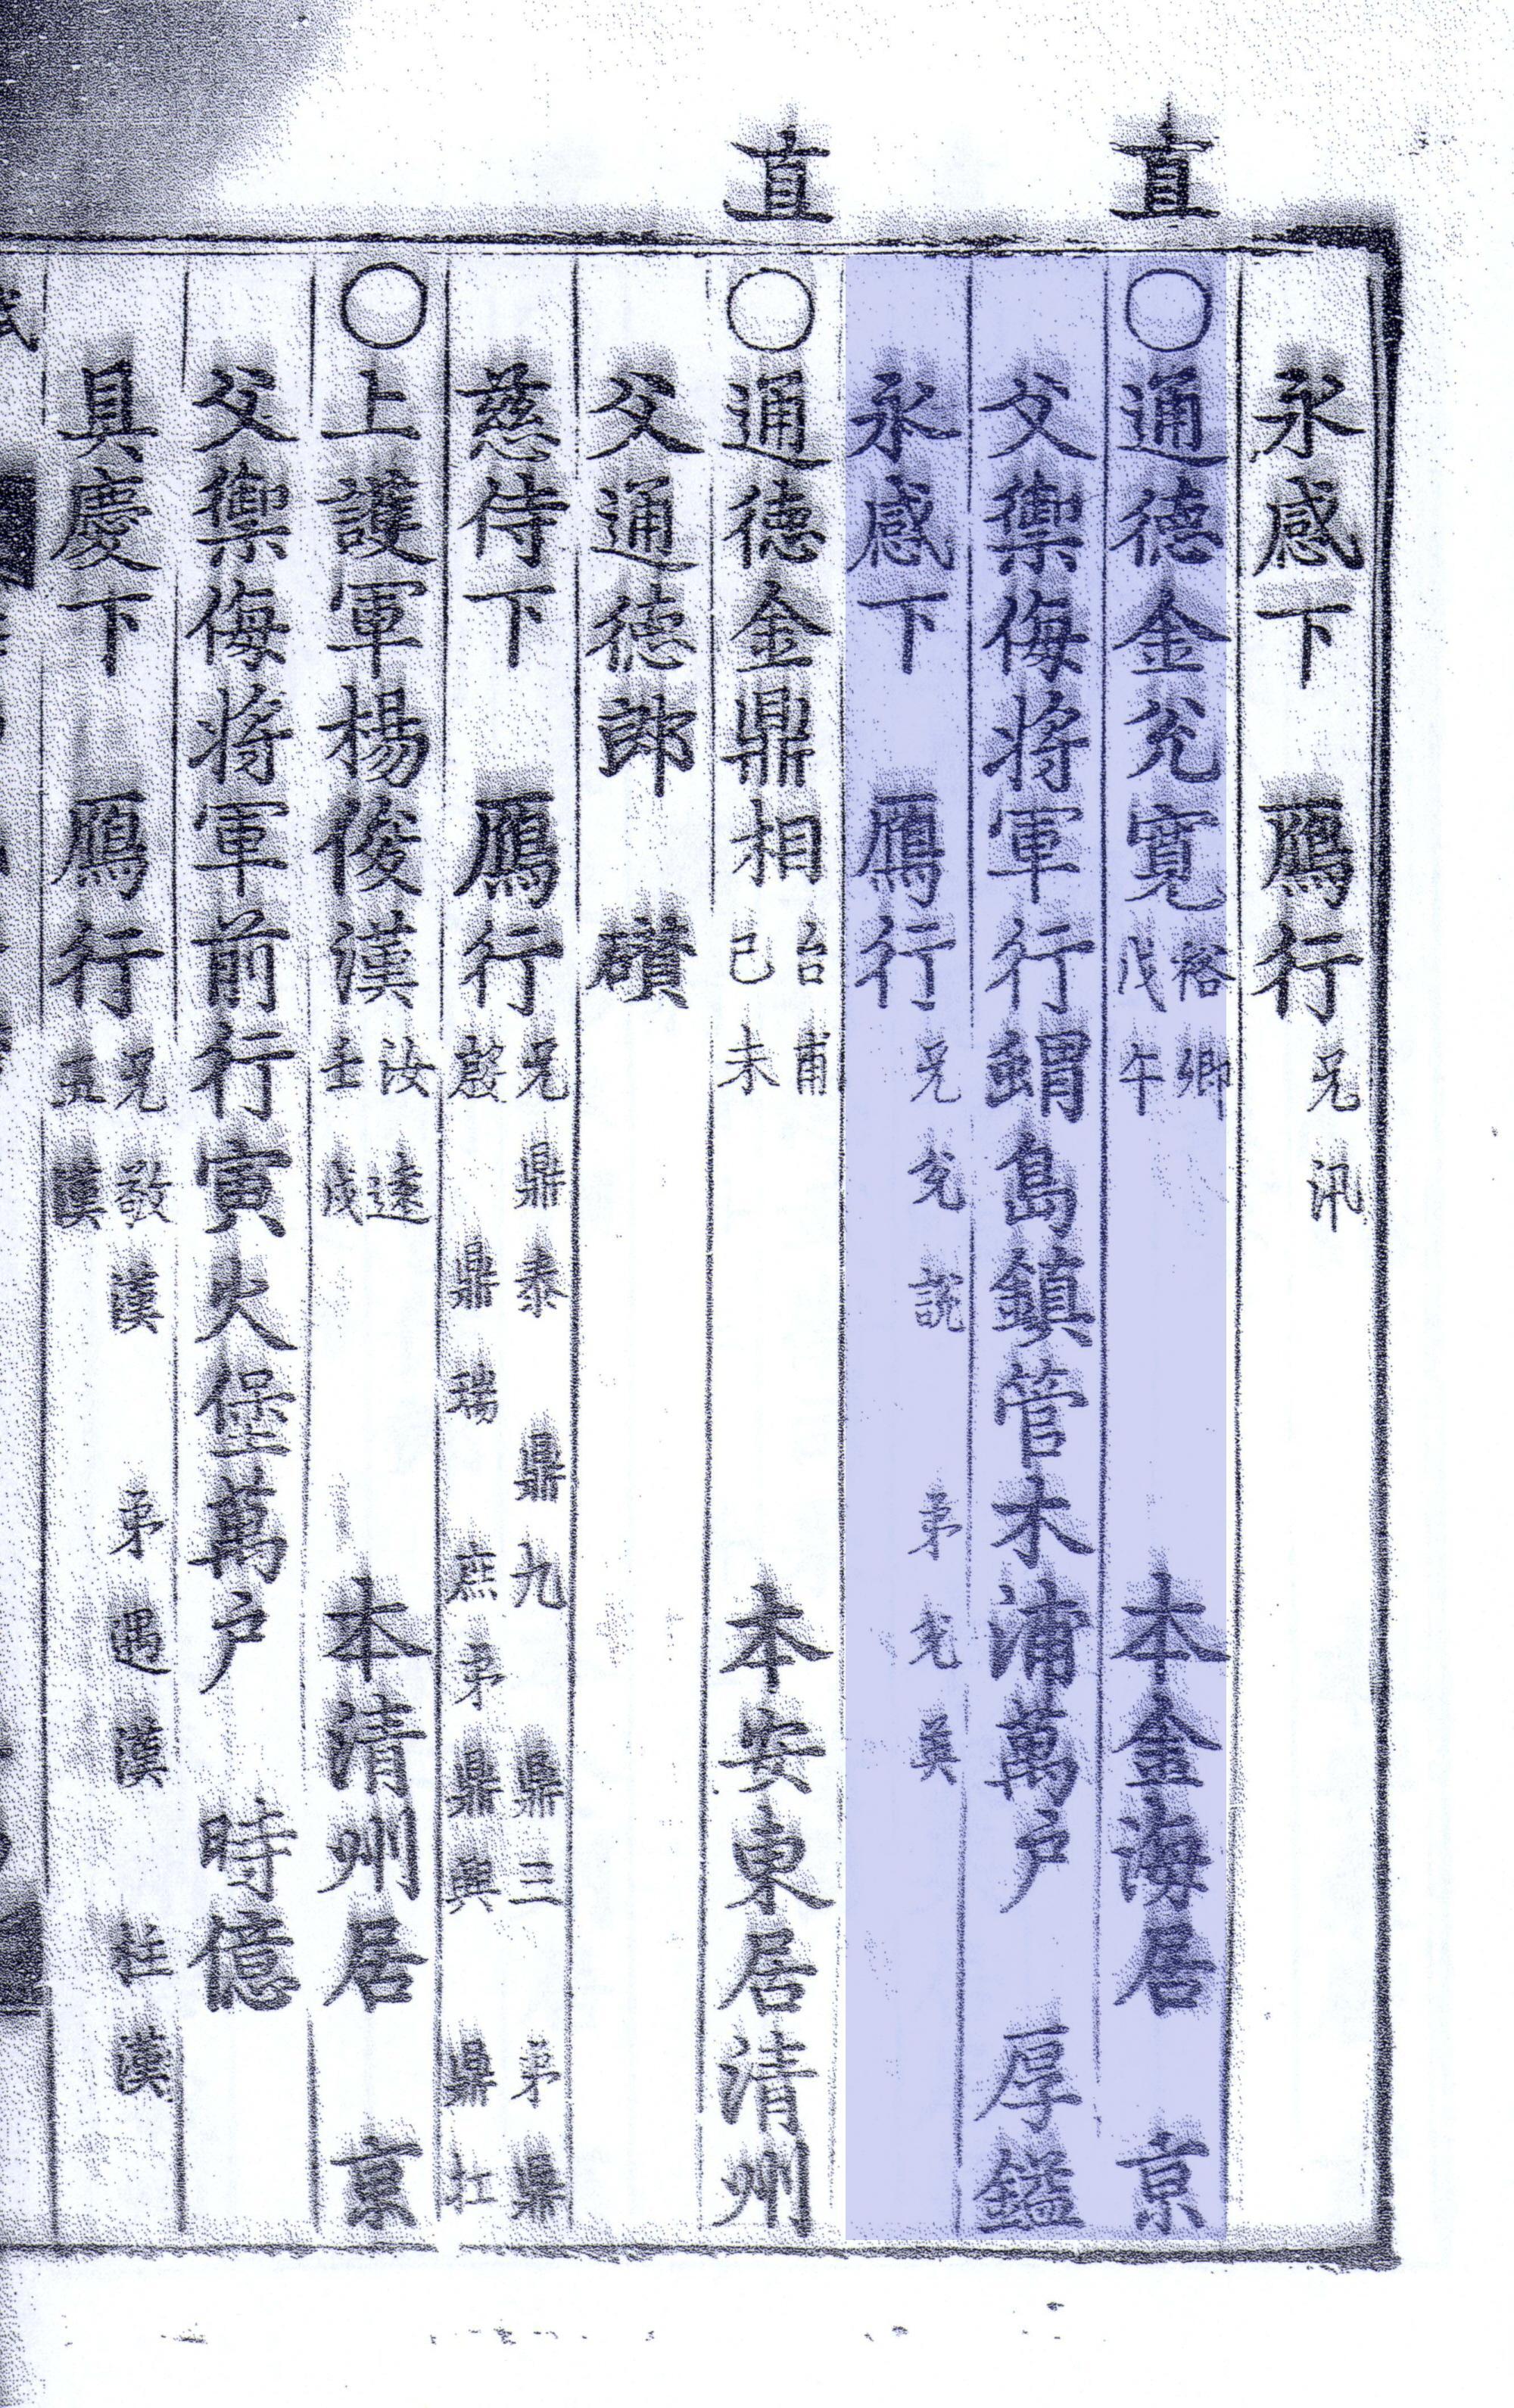 永感下 鴈行 兄汛
直
○通德金兊寬 裕卿 戊午 本金海居 京
父禦侮將軍行蝟島鎭管木浦萬戶 厚鎰
永感下 鴈行 兄兊說 弟兊英
直
○通德金鼎相 台甫 己未 本安東居清州
父通德郎 礩
慈侍下 鴈行 兄鼎泰 鼎九 鼎三 弟鼎
殷 鼎瑞 庶弟鼎巽 鼎扛
○上護軍楊俊漢 汝遠 壬戌 本清州居 京
父禦侮將軍前行寅火堡萬戶 時億
具慶下 鴈行 兄敬漢 弟遇漢 柱漢
五漢